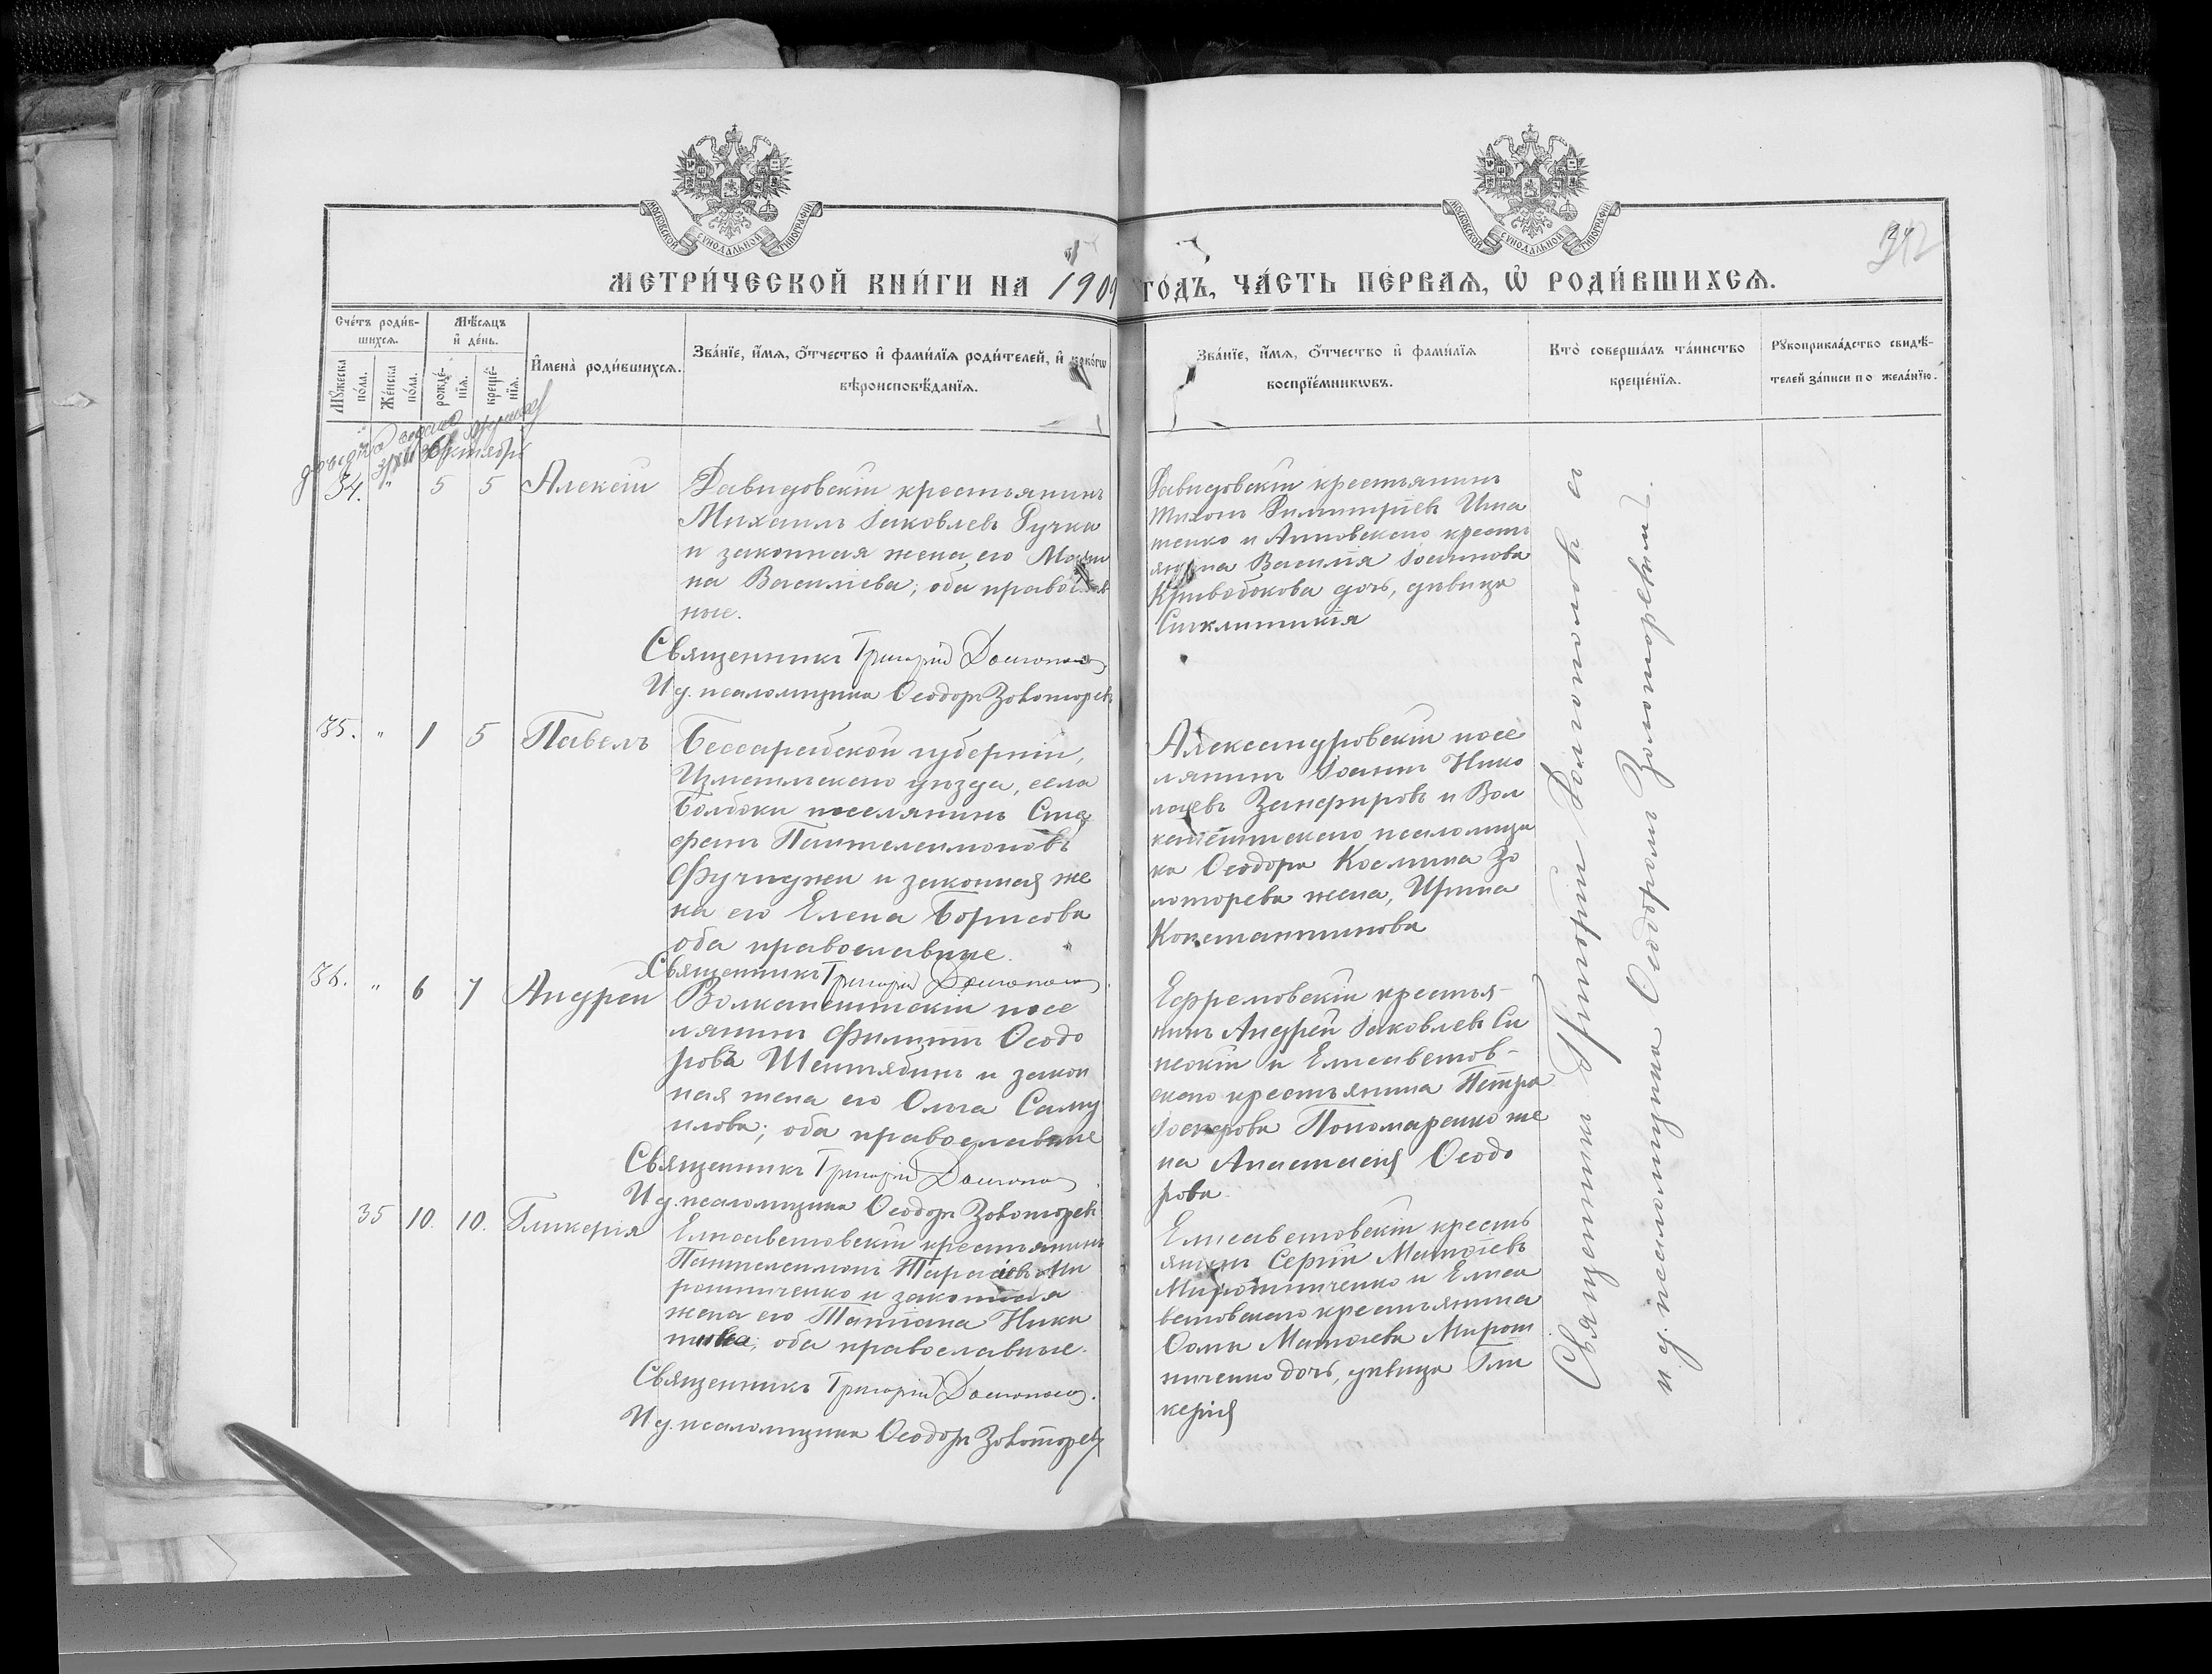 МОСКОВСКОЙ СѴНОДАЛЬНОЙ ТИПОГРАФІИ
МОСКОВСКОЙ СѴНОДАЛЬНОЙ ТИПОГРАФІИ
МЕТРИ́ЧЕСКОЙ КНИ́ГИ НА 1909 ГО́ДЪ, ЧА́СТЬ ПЕ́РВАѦ, Ѡ҆ РОДИ́ВШИХСѦ.
312
Сче́тъ роди́в-
шихсѧ.
Мѣ́сѧцъ
и҆ де́нь.
Мꙋ́жеска
по́ла.
Же́нска
по́ла.
рожде́-
нїѧ.
креще́-
нїѧ.
И҆мена̀ роди́вшихсѧ.
Зва́нїе, и҆́мѧ, ѻ҆́тчество и҆ фами́лїѧ роди́телей, и҆ како́гѡ
вѣроисповѣ́данїѧ.
Зва́нїе, и҆́мѧ, ѻ҆́тчество и҆ фами́лїѧ
воспрїе́мникѡвъ.
Кто̀ соверша́лъ та́инство
креще́нїѧ.
Рꙋкоприкла́дство свидѣ́-
телей за́писи по жела́нїю.
Октябрь
34. " 5 5 Алексій
Давидовскій крестьянинъ
Михаилъ Іаковлевъ Ручка
и законная жена его Мари
на Василіева; оба православ
ные.
Священникъ Григорій
И д. псаломщика Ѳеодоръ Золоторевъ
Давидовскій крестьянинъ
Тихонъ Димитріевъ Игна
тенко и Анновскаго кресть
янина Василія Іоаннова
Кривобокова дочь, дѣвица
Синклитикія
35. " 1 5 Павелъ
Бессарабской губерніи,
Измаильскаго уѣзда, села
Болбоки поселянинъ Сте
фанъ Пантелеимоновъ
Фучиджи и законная же
на его Елена Борисова
оба православные.
Священникъ Григорій
Александровскій посе
лянинъ Іоаннъ Нико
лаевъ Занфировъ и Вол
канештскаго псаломщи
ка Ѳеодора Космина Зо
лоторева жена, Ирина
Константинова
36. " 6 7 Андрей
Волканештскій посе
лянинъ Филиппъ Ѳеодо
ровъ Шентябинъ и закон
ная жена его Ольга Саму
илова; оба православные
Священникъ Григорій
И д. псаломщика Ѳеодоръ Золоторевъ
Ефремовскій крестья-
нинъ Андрей Іаковлевъ Си
нокій и Елисаветов-
скаго крестьянина Петра
Пономаренко же
на Анастасія Ѳеодо
рова.
35 10. 10. Гликерія
Елисаветовскій крестьянинъ
Пантелеимонъ Тарасіевъ Ми
рошниченко и законная
жена его Татіана Ники
това; оба православные.
Священникъ Григорій
И д. псаломщика Ѳеодоръ Золоторевъ
Елисаветовскій кресть
янинъ Сергій Матѳіевъ
Мирошниченко и Елиса
ветовскаго крестьянина
Ѳомы Матѳіева Мирош
ниченко дочь, дѣвица Гли
керія
Священникъ Григорій съ
и д. псаломщика Ѳеодоромъ Золоторевымъ.